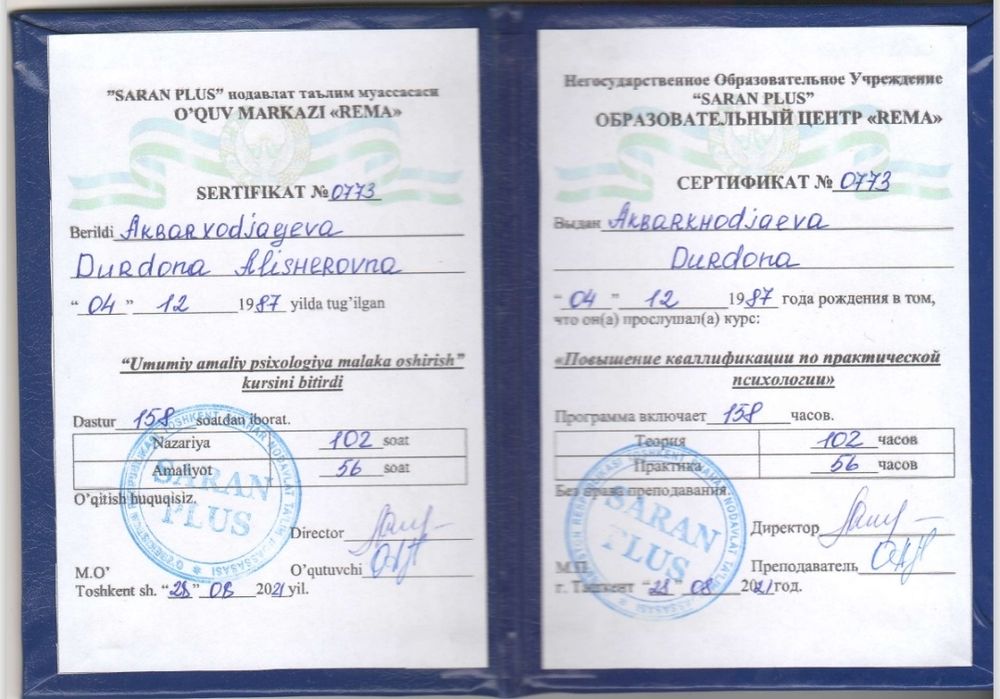 "SARAN PLUS" нодавлат таълим муассасаси
O'QUV MARKAZI «REMA»
SERTIFIKAT № 0773
Berildi Akbarxodjayeva
Durdona Alisherovna
"04" 12 1987 yilda tug'ilgan
"Umumiy amaliy psixologiya malaka oshirish"
kursini bitirdi
Dastur 158 soatdan iborat.
Nazariya 102 soat
Amaliyot 56 soat
O'qitish huquqisiz.
SARAN
PLUS
Director
O'qutuvchi
M.O'
Toshkent sh. "28" 08 2021 yil.
Негосударственное Образовательное Учреждение
"SARAN PLUS"
ОБРАЗОВАТЕЛЬНЫЙ ЦЕНТР «REMA»
СЕРТИФИКАТ № 0773
Выдан Akbarkhodjaeva
Durdona
"04" 12 1987 года рождения в том,
что он(а) прослушал(а) курс:
«Повышение кваллификации по практической
психологии»
Программа включает 158 часов.
Теория 102 часов
Практика 56 часов
Без права преподавания.
SARAN
PLUS
Директор
Преподаватель
М.П.
г. Ташкент "28" 08 2021 год.